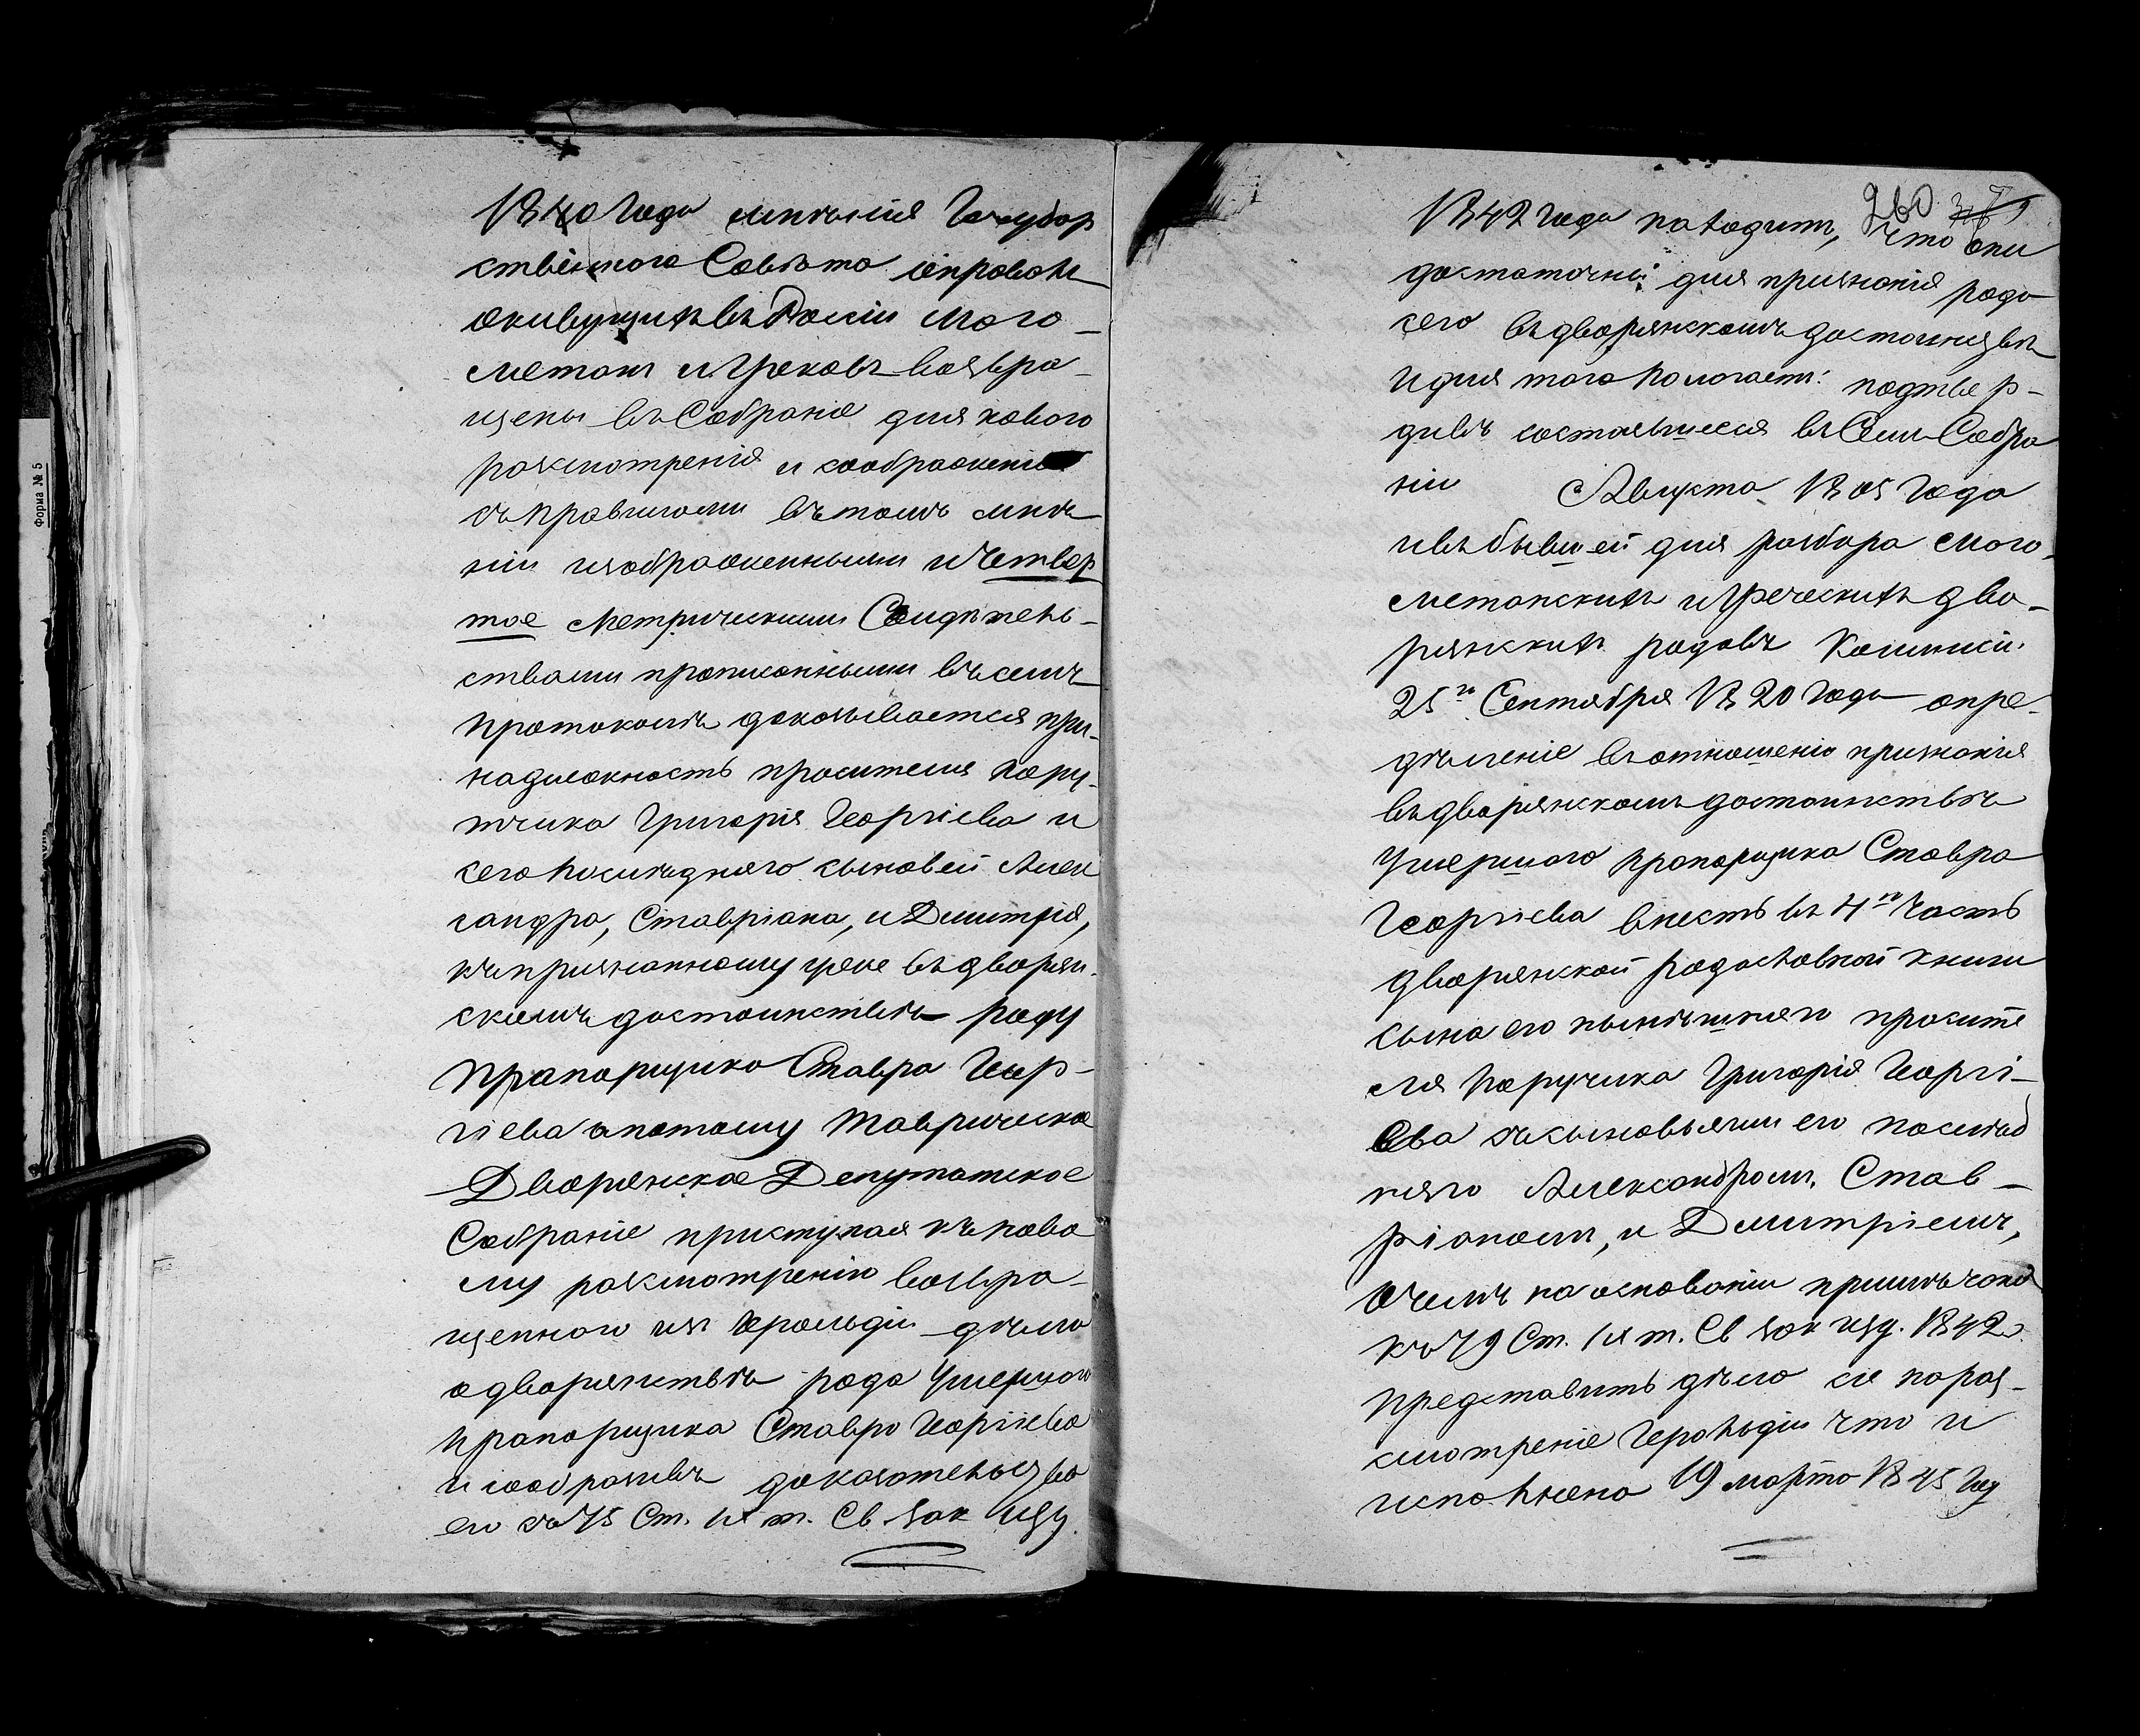 1840 года мнѣнія Государ
ственнаго Совѣта о правахъ
живущихъ въ Россіи Маго-
метанъ и Грековъ возвра-
щены въ Собраніе для новаго
разсмотрѣнія и соображенія
съ правилами въ томъ мнѣ
ніи изображенными и Четвер
тое Метрическими Свидѣтель-
ствами прописанными въ семъ
протоколѣ доказывается при-
надлежность просителя пору-
тчика Григорія Георгіева и
сего послѣдняго сыновей Алек
сандра, Ставріана, и Дмитрія,
къ признанному уже въ дворян-
скомъ достоинствѣ роду
Прапорщика Ставра Геор-
гіева а потому Таврическое
Дворянское Депутатское
Собраніе приступая къ ново
му разсмотрѣнію возвра-
щеннаго изъ Герольдіи дѣла
о дворянствѣ рода Умершаго
Прапорщика Ставра Георгіева
и сообразивъ доказательства
его съ 75 Ст. IX т. Св зак изд.
260
1842 года находитъ, что они
достаточны для признанія рода
сего въ дворянскомъ достоинствѣ
и для того Полагаетъ: подтвер-
дивъ состоявшееся въ Семъ Собра
ніи Августа 1805 года
и въ бывшей для разбора Маго-
метанскихъ и Греческихъ дво-
рянскихъ родовъ Комиссіи
25го Сентября 1820 года опре-
дѣленіе въ отношеніи признанія
въ дворянскомъ достоинствѣ
Умершаго Прапорщика Ставра
Георгіева внесть въ 4ю Часть
дворянской родословной книги
сына его нынѣшняго просите
ля Поручика Григорія Георгі-
Ева съ сыновьями его послѣд
няго Александромъ, Став-
ріаномъ, и Дмитріемъ,
О чемъ на основаніи примѣчанія
къ 79 Ст. IX т. Св зак изд. 1842
представить дѣло сіе на раз-
смотреніе Герольдіи что и
исполнено 19 марта 1845 год
Форма № 5